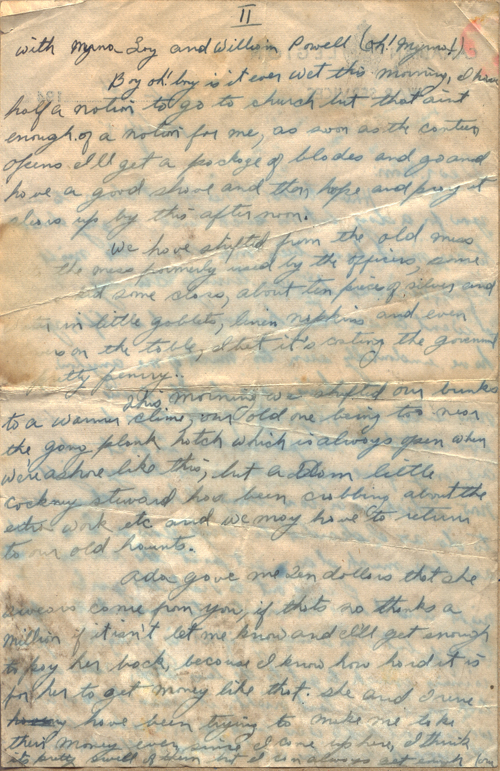 II
with Myrna Loy and William Powell (oh! Myrna!)
Boy oh! boy is it ever wet this morning, I have
half a notion to go to church but that aint
enough of a notion for me, as soon as the canteen
opens I'll get a package of blades and go and
have a good shave and then hope and pray it
clears up by this afternoon.
We have shifted from the old mess
the mess formerly used by the officers, some
some class, about ten pieces of silver and
in little goblets, linen napkins and even
on the table, I bet it's costing the
penny.
This morning we shifted our bunks
to a warmer clime, our old one being too near
the gang plank hatch which is always open when
we're ashore like this, but a little
cockney steward has been crabbing about the
extra work etc and we may have to return
to our old haunts.
Ada gave me ten dollars that she
swears came from you, if thats so thanks a
million if it isn't let me know and I'll get enough
to pay her back, because I know how hard it is
for her to get money like that. She and Irene
have been trying to make me take
their money ever since I came up here, I think
its pretty swell of them but I can always get